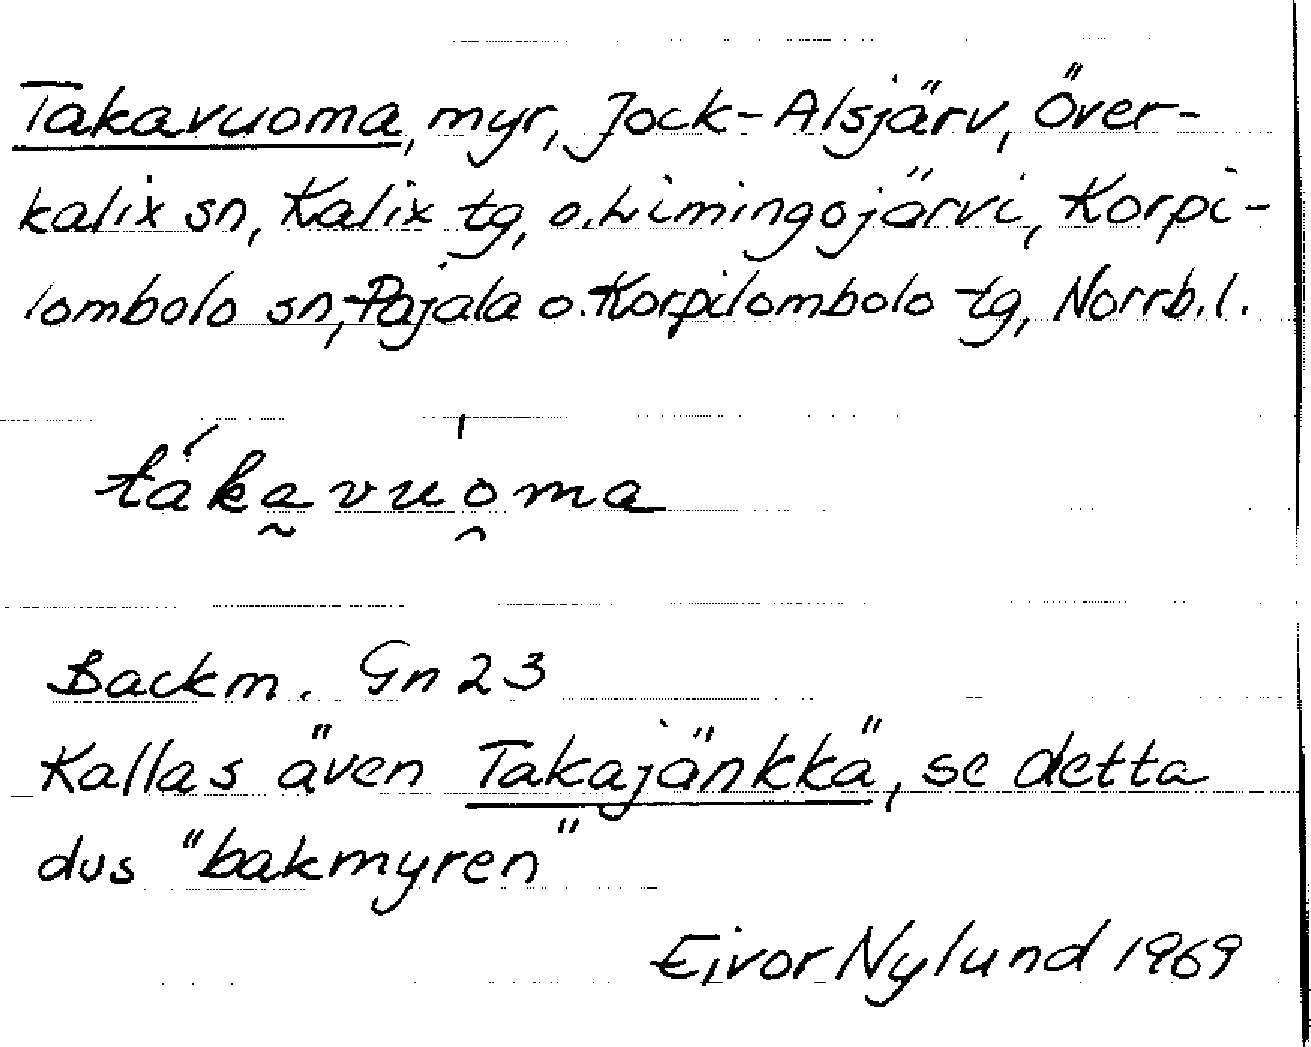 Takavuoma, myr, Jock-Alsjärv, Över-
kalix sn, Kalix tg, o. Limingojärvi, Korpi-
lombolo sn, Pajala o. Korpilombolo tg, Norrb. l.
tákḁvuo̯ma
Backm. Gn 23
Kallas även Takajänkkä, se detta
dvs "bakmyren"
Eivor Nylund 1969